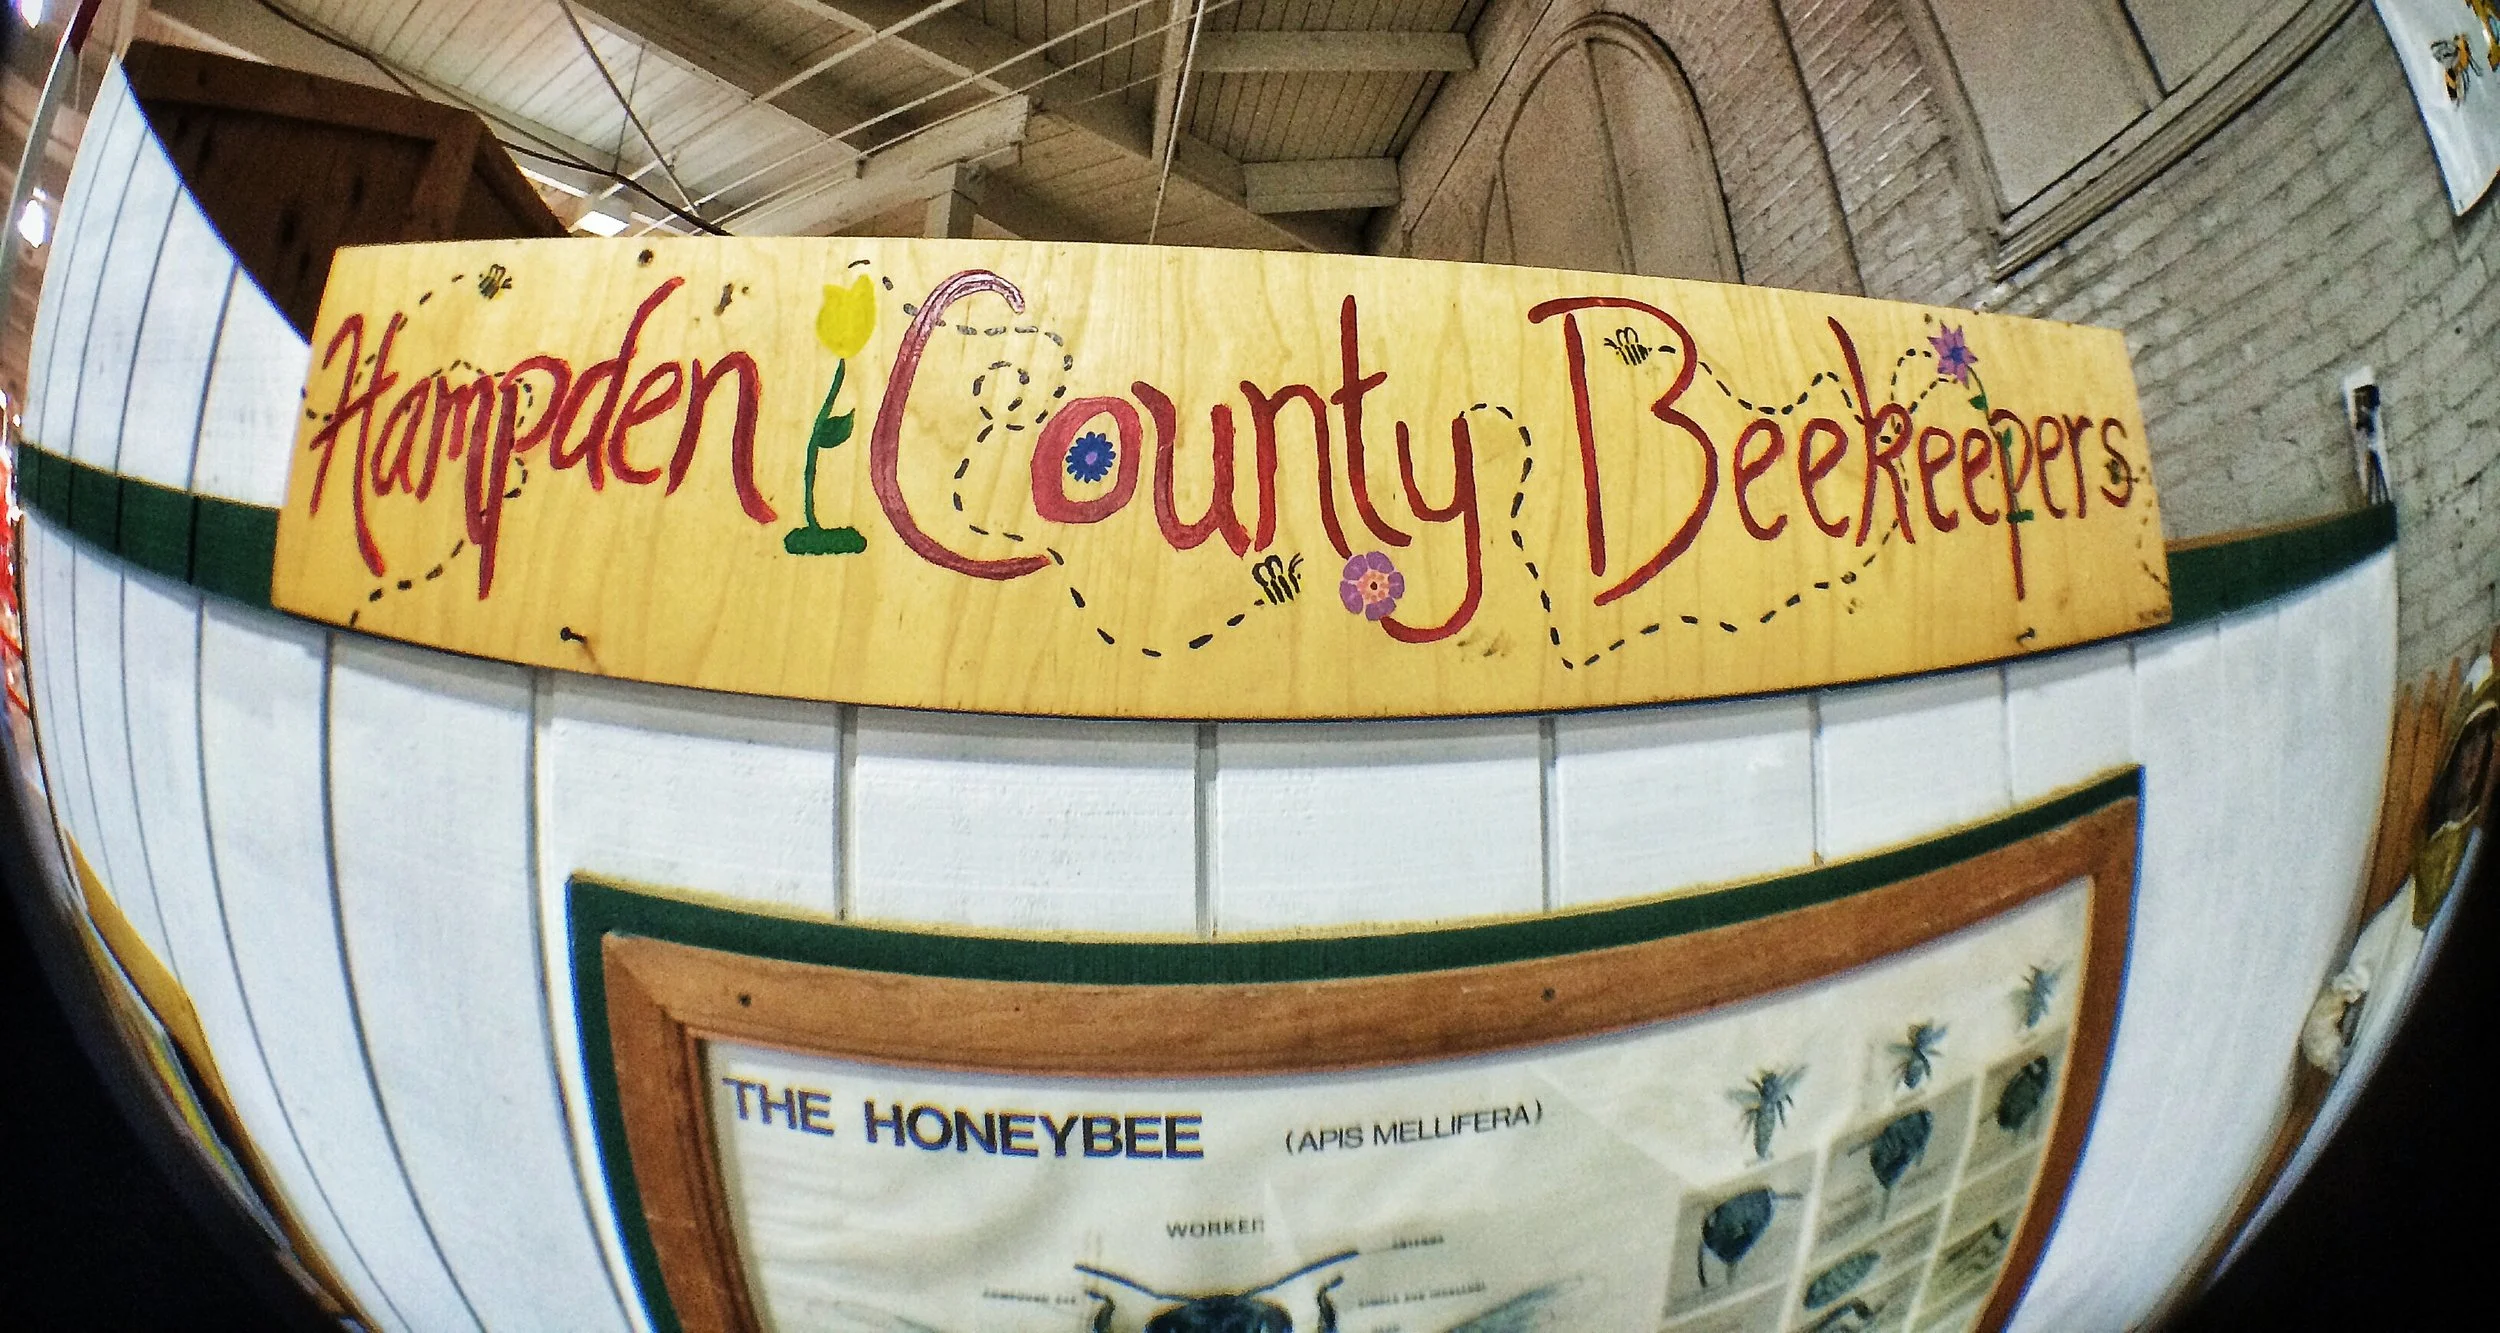 Hampden County Beekeepers
THE HONEYBEE (APIS MELLIFERA)
WORKER